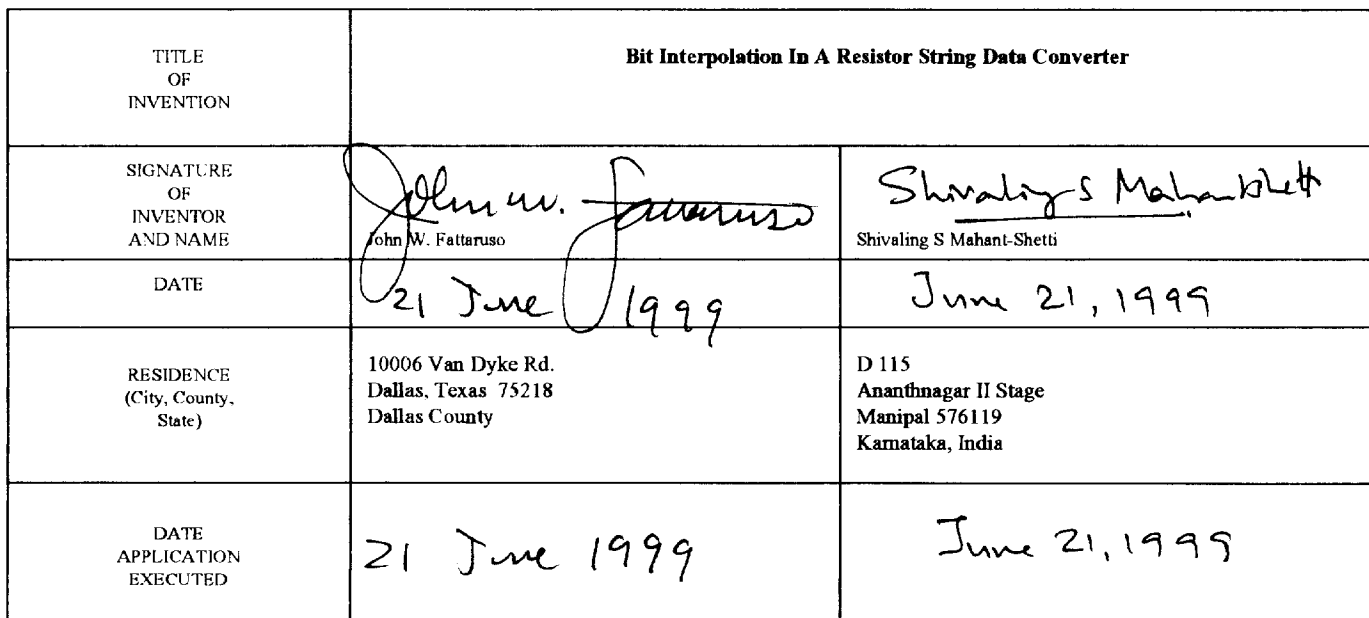 TITLE
OF
INVENTION
Bit Interpolation In A Resistor String Data Converter
SIGNATURE
OF
INVENTOR
AND NAME
John W. Fattaruso
John W. Fattaruso
Shivaling S Mahantshetti
Shivaling S Mahant-Shetti
DATE
21 June 1999
June 21, 1999
RESIDENCE
(City, County,
State)
10006 Van Dyke Rd.
Dallas, Texas 75218
Dallas County
D 115
Ananthnagar II Stage
Manipal 576119
Karnataka, India
DATE
APPLICATION
EXECUTED
21 June 1999
June 21, 1999